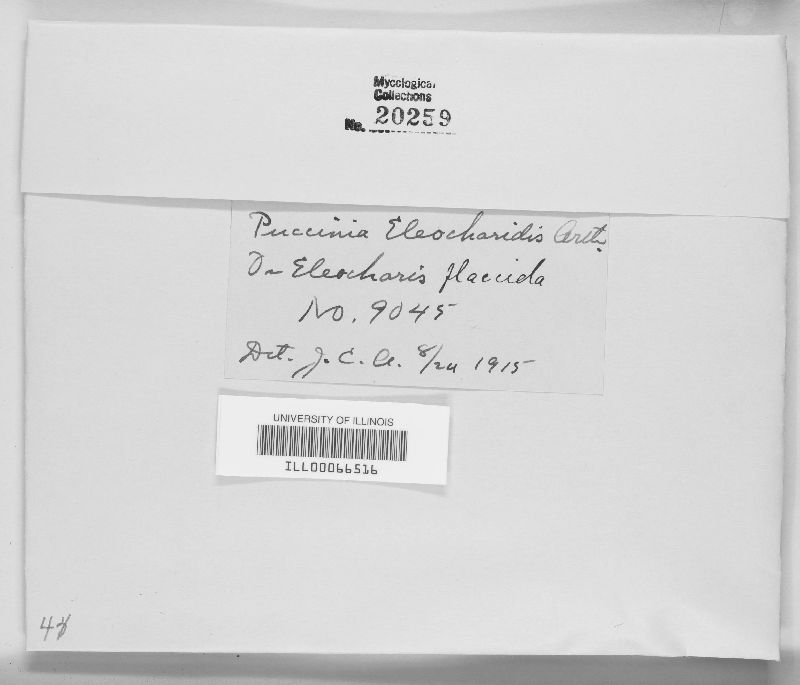 Mycological
Collections
No. 20259
Puccinia Eleocharidis Arth.
On Eleocharis flaccida
No. 9045
Det. J. C. A. 8/24 1915
UNIVERSITY OF ILLINOIS
ILL00066516